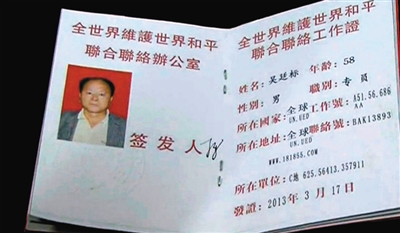 全世界維護世界和平
聯合聯絡辦公室
签发人
全世界維護世界和平
聯合聯絡工作證
姓名：吴廷标 年龄：58
性别：男 職别：专員
所在國家：全球工作號：A51.56.686
UN.UED AA
所在地址：全球聯絡號：BAK13893
UN.UED
www.181855.COM
所在單位：C總 625.56413.357911
發證：2013年3月17日